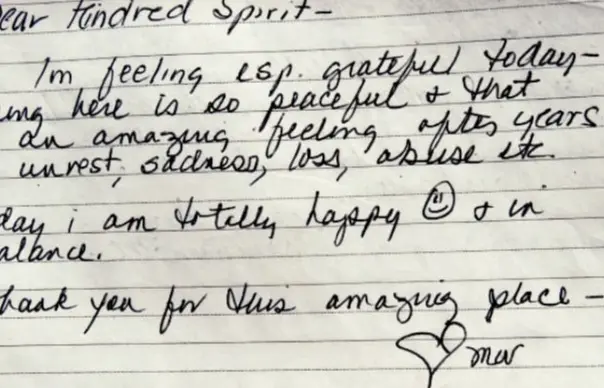 ear Kindred Spirit-
Im feeling esp. grateful today-
ing here is so peaceful & that
an amazing feeling after years
unrest, sadness, loss, abuse etc.
day i am totally happy ☺ & in
alance.
hank you for this amazing place-
mer